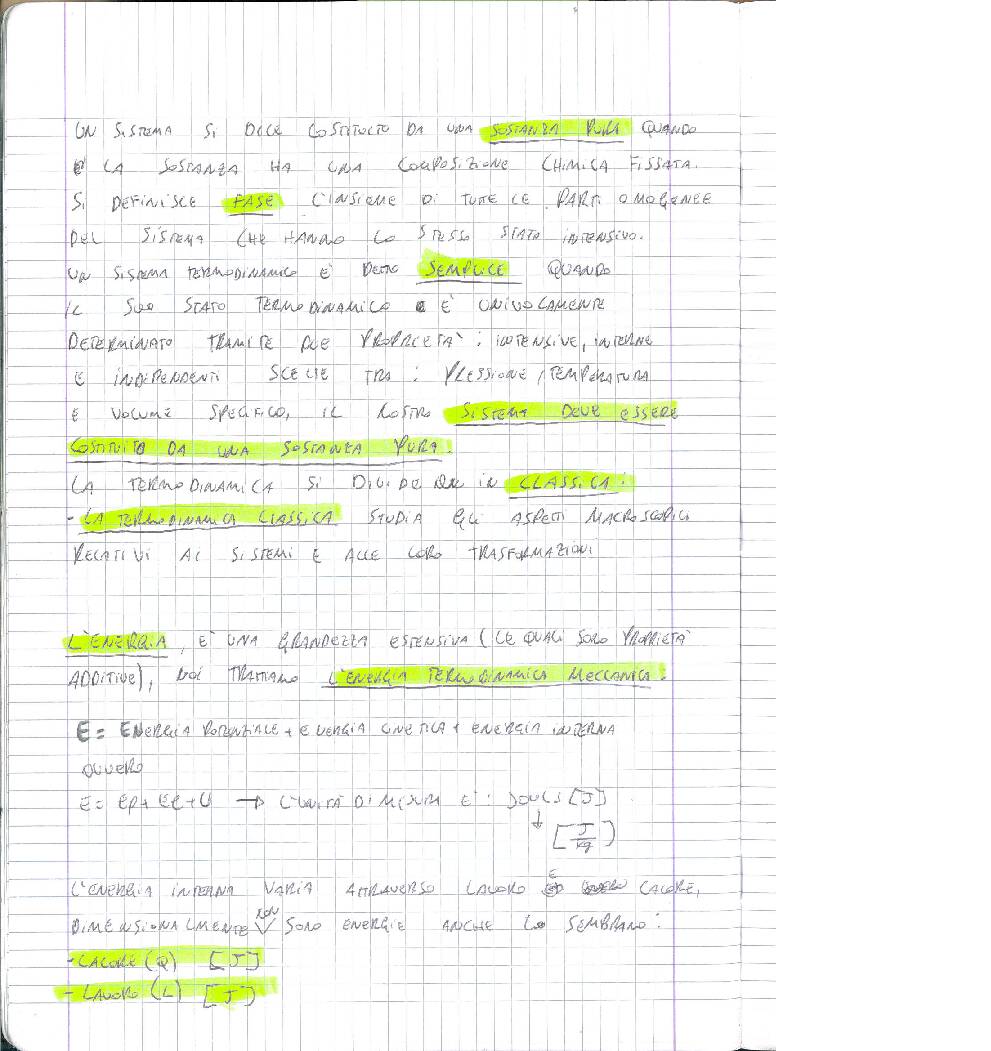 UN SISTEMA SI DICE COSTITUITO DA UNA SOSTANZA PURA QUANDO
LA SOSTANZA HA UNA COMPOSIZIONE CHIMICA FISSATA.
SI DEFINISCE FASE L'INSIEME DI TUTTE LE PARTI OMOGENEE
DEL SISTEMA CHE HANNO LO STESSO STATO INTENSIVO.
UN SISTEMA TERMODINAMICO E' DETTO SEMPLICE QUANDO
IL SUO STATO TERMODINAMICO E' UNIVOCAMENTE
DETERMINATO TRAMITE DUE PROPRIETA': INTENSIVE, INTERNE
E INDIPENDENTI SCELTE TRA: PRESSIONE, TEMPERATURA
E VOLUME SPECIFICO, IL NOSTRO SISTEMA DEVE ESSERE
COSTITUITO DA UNA SOSTANZA PURA.
LA TERMODINAMICA SI DIVIDE IN CLASSICA:
- LA TERMODINAMICA CLASSICA STUDIA GLI ASPETTI MACROSCOPICI
RELATIVI AI SISTEMI E ALLE LORO TRASFORMAZIONI
L'ENERGIA, E' UNA GRANDEZZA ESTENSIVA (LE QUALI SONO PROPRIETA'
ADDITIVE), NOI TRATTIAMO L'ENERGIA TERMODINAMICA MECCANICA:
E = ENERGIA POTENZIALE + ENERGIA CINETICA + ENERGIA INTERNA
OVVERO
E = EP + EC + U → L'UNITÀ DI MISURA E': JOULS [J]
↓ [J/kg]
L'ENERGIA INTERNA VARIA ATTRAVERSO LAVORO E CALORE,
DIMENSIONALMENTE NON SONO ENERGIE ANCHE LO SEMBRANO:
- CALORE (Q) [J]
- LAVORO (L) [J]